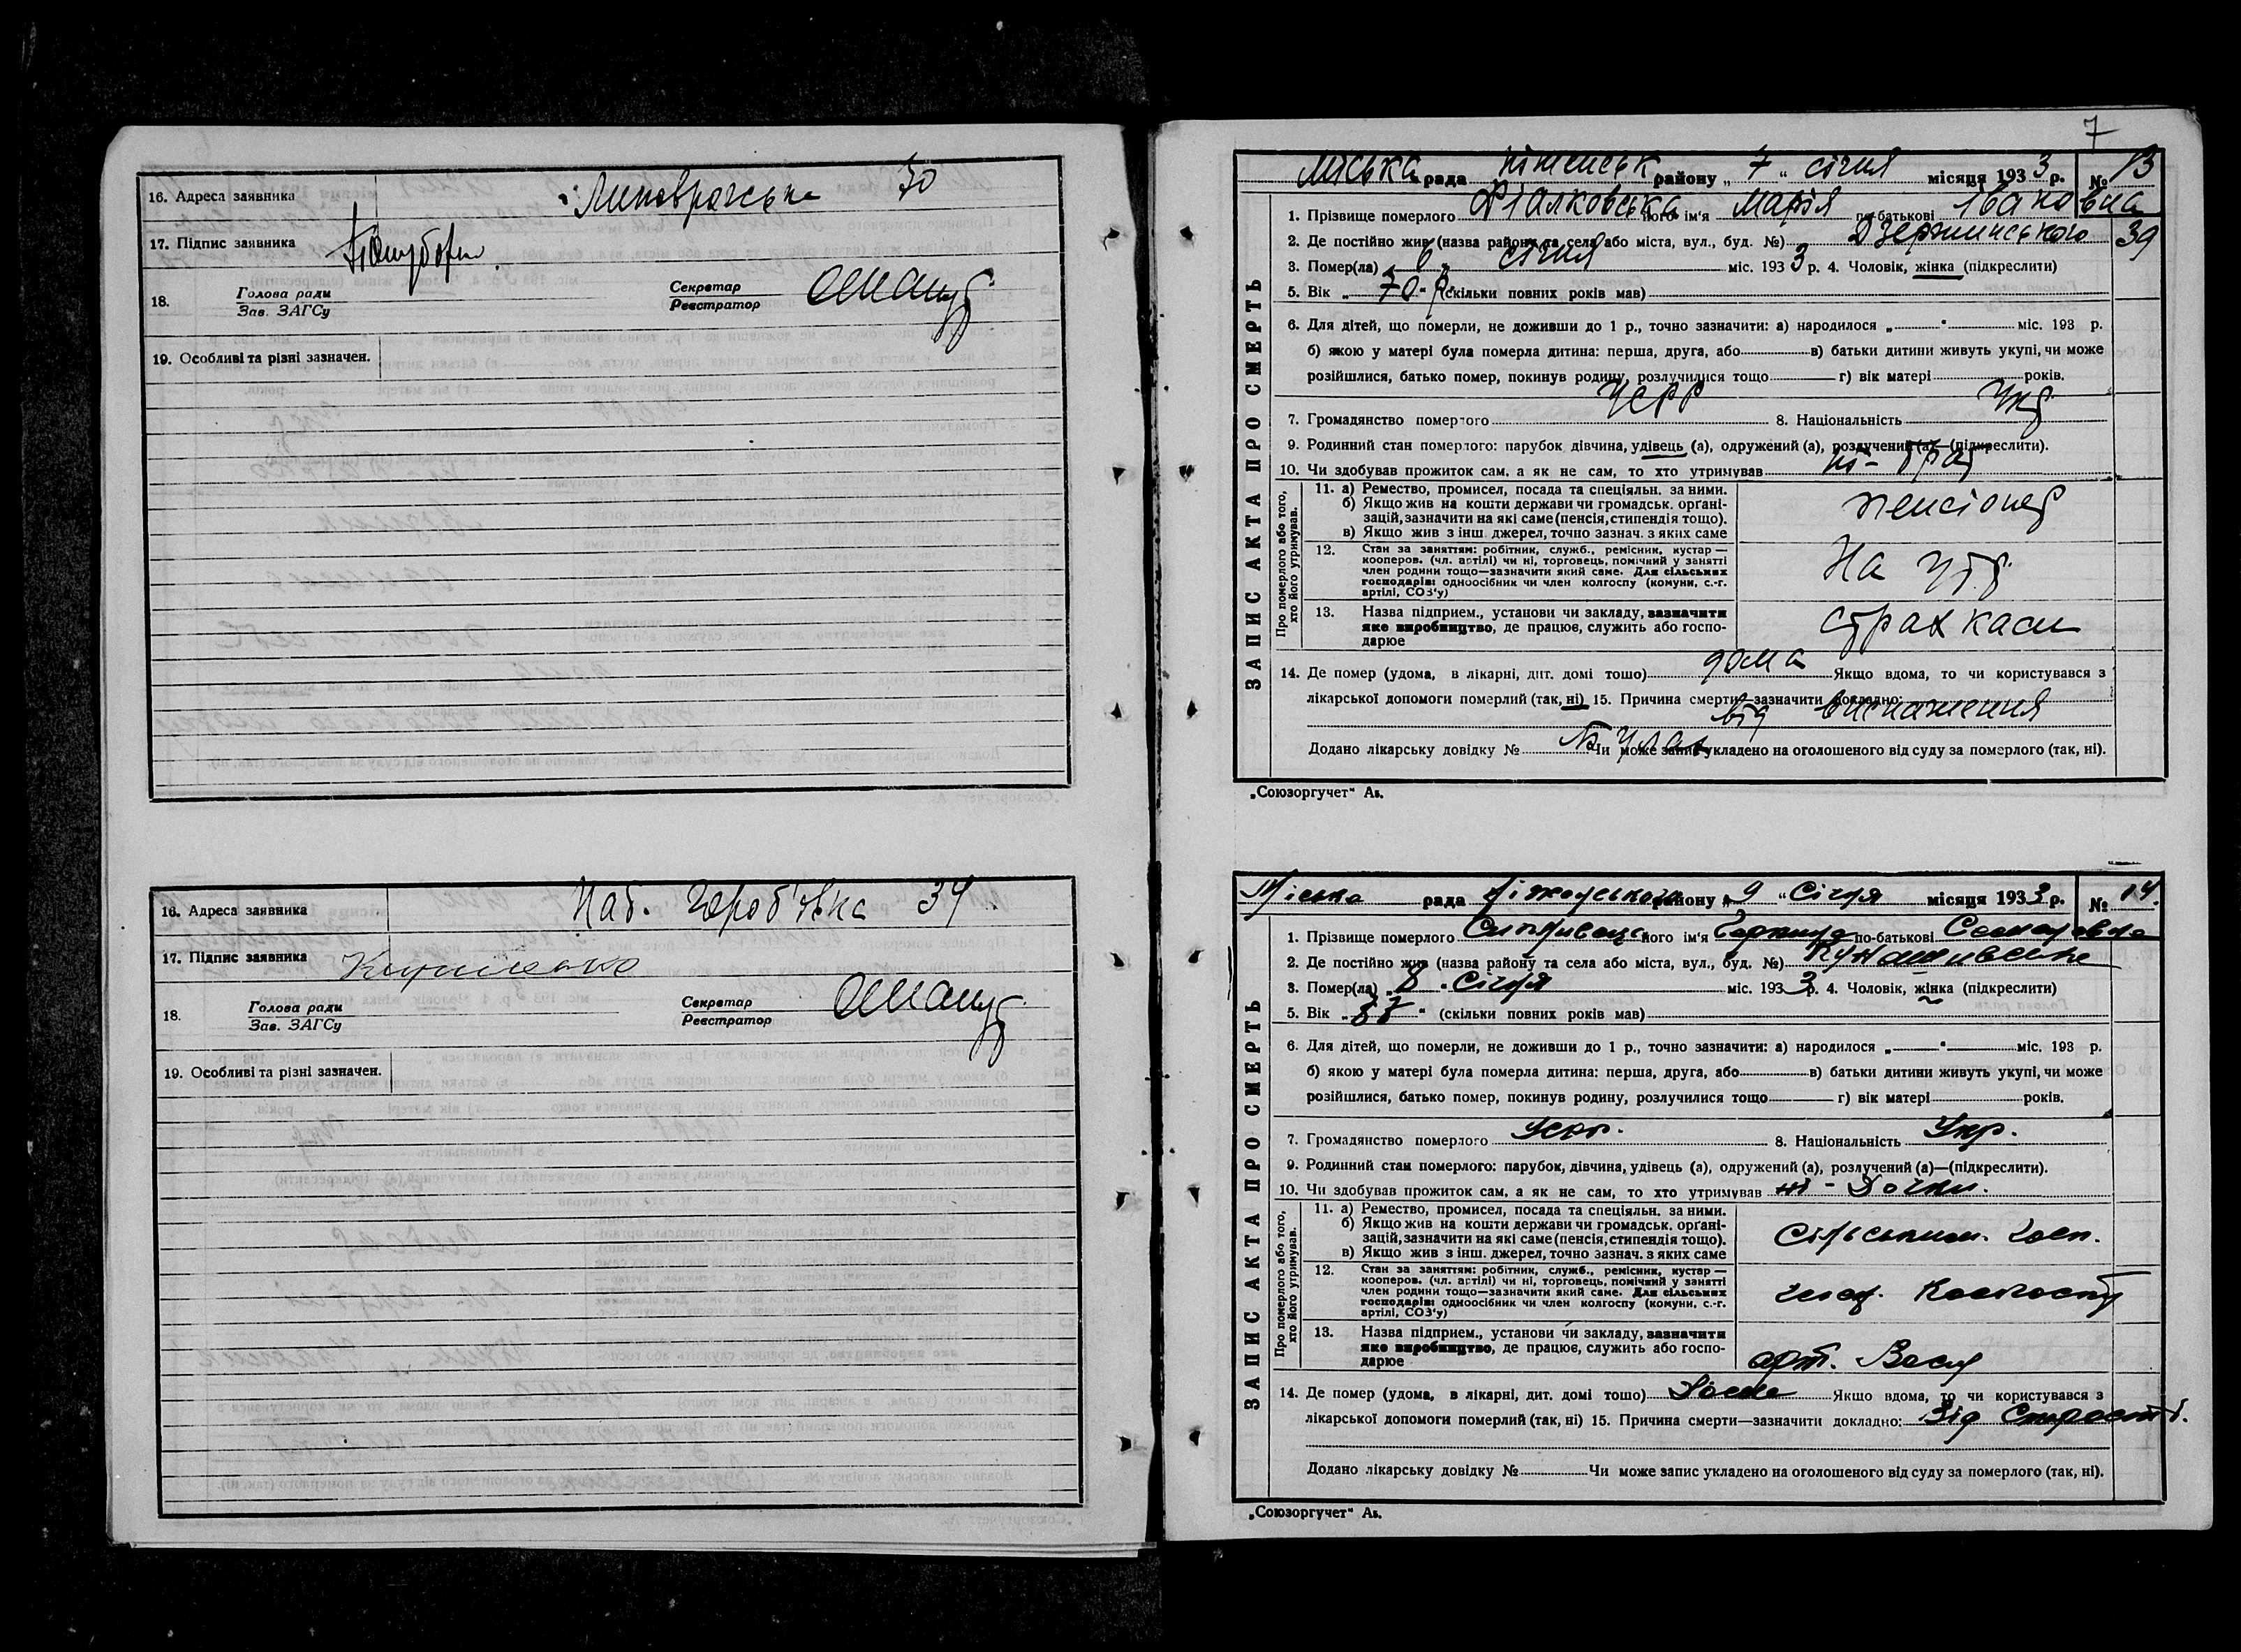 16. Адреса заявника Липоврогська 70
17. Підпис заявника
18. Голова ради Секретар
Зав. ЗАГСу Реєстратор
19. Особливі та різні зазначен.
16. Адреса заявника Наб. 34
17. Підпис заявника
18. Голова ради Секретар
Зав. ЗАГСу Реєстратор
19. Особливі та різні зазначен.
7
ЗАПИС АКТА ПРО СМЕРТЬ
Міська рада Ніженськ району „ 7 “ січня місяця 1933 р. № 13
1. Прізвище померлого Фіалковська його ім'я Марія по-батькові Івановна
2. Де постійно жив (назва району та села або міста, вул., буд. №) Дзержинського 39
3. Помер(ла) „ 6 „ січня міс. 1933 р. 4. Чоловік, жінка (підкреслити)
5. Вік „ 70 “ р. (скільки повних років мав)
6. Для дітей, що померли, не доживши до 1 р., точно зазначити: а) народилося „ “ міс. 193 р.
б) якою у матері була померла дитина: перша, друга, або в) батьки дитини живуть укупі, чи може
розійшлися, батько помер, покинув родину, розлучилися тощо г) вік матері років.
7. Громадянство померлого УСРР 8. Національність Укр.
9. Родинний стан померлого: парубок, дівчина, удівець (а), одружений (а), розлучений (а)—(підкреслити).
10. Чи здобував прожиток сам, а як не сам, то хто утримував ні -
Про померлого або того, хто його утримував.
11. а) Ремество, промисел, посада та спеціяльн. за ними.
б) Якщо жив на кошти держави чи громадськ. орґані-
зацій, зазначити на які саме (пенсія, стипендія тощо).
в) Якщо жив з інш. джерел, точно зазнач. з яких саме
пенсіонер
12. Стан за заняттям: робітник, служб., ремісник, кустар —
кооперов. (чл. артілі) чи ні, торговець, помічний у занятті
член родини тощо—зазначити який саме. Для сільських
господарів: одноосібник чи член колгоспу (комуни, с.-г.
артілі, СОЗ'у)
На утр.
13. Назва підприєм., установи чи закладу, зазначити
яке виробництво, де працює, служить або госпо-
дарює
страх каси
14. Де помер (удома, в лікарні, дит. домі тощо) дома Якщо вдома, то чи користувався з
лікарської допомоги померлий (так, ні) 15. Причина смерти—зазначити докладно: від виснаження
Додано лікарську довідку № Чи може запис укладено на оголошеного від суду за померлого (так, ні).
„Союзоргучет“ Ав.
ЗАПИС АКТА ПРО СМЕРТЬ
Міська рада Ніжинського району „ 9 “ Січня місяця 1933 р. № 14.
1. Прізвище померлого його ім'я по-батькові
2. Де постійно жив (назва району та села або міста, вул., буд. №) Кунашивська
3. Помер(ла) „ 8 „ Січня міс. 1933 р. 4. Чоловік, жінка (підкреслити)
5. Вік „ “ (скільки повних років мав)
6. Для дітей, що померли, не доживши до 1 р., точно зазначити: а) народилося „ “ міс. 193 р.
б) якою у матері була померла дитина: перша, друга, або в) батьки дитини живуть укупі, чи може
розійшлися, батько помер, покинув родину, розлучилися тощо г) вік матері років.
7. Громадянство померлого Усрр. 8. Національність Укр.
9. Родинний стан померлого: парубок, дівчина, удівець (а), одружений (а), розлучений (а)—(підкреслити).
10. Чи здобував прожиток сам, а як не сам, то хто утримував ні - Дочки.
Про померлого або того, хто його утримував.
11. а) Ремество, промисел, посада та спеціяльн. за ними.
б) Якщо жив на кошти держави чи громадськ. орґані-
зацій, зазначити на які саме (пенсія, стипендія тощо).
в) Якщо жив з інш. джерел, точно зазнач. з яких саме
госп.
12. Стан за заняттям: робітник, служб., ремісник, кустар —
кооперов. (чл. артілі) чи ні, торговець, помічний у занятті
член родини тощо—зазначити який саме. Для сільських
господарів: одноосібник чи член колгоспу (комуни, с.-г.
артілі, СОЗ'у)
член Колгоспу
13. Назва підприєм., установи чи закладу, зазначити
яке виробництво, де працює, служить або госпо-
дарює
арт.
14. Де помер (удома, в лікарні, дит. домі тощо) Якщо вдома, то чи користувався з
лікарської допомоги померлий (так, ні) 15. Причина смерти—зазначити докладно: Від Старости.
Додано лікарську довідку № Чи може запис укладено на оголошеного від суду за померлого (так, ні).
„Союзоргучет“ Ав.